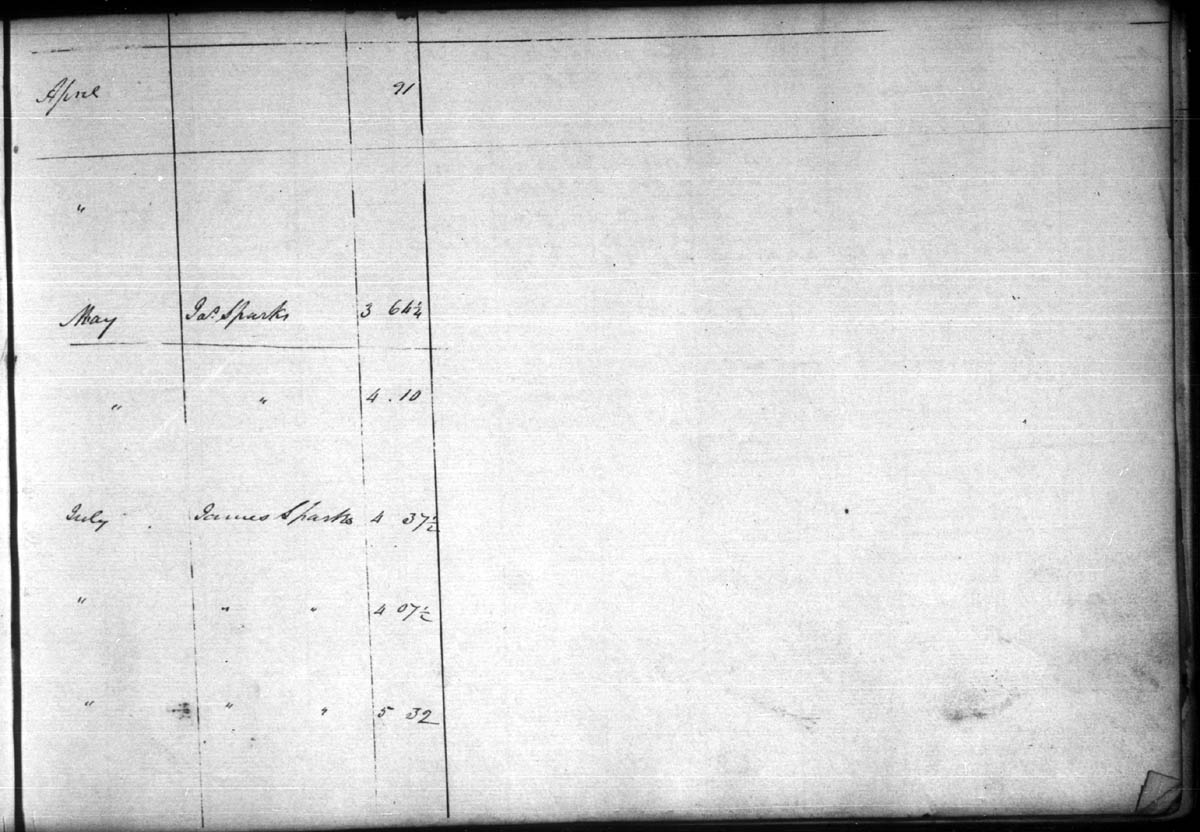 April 91
"
May Jas. Sparks 3 64¼
" " 4.10
July James Sparks 4 37½
" " " 4 07½
" " " 5 32